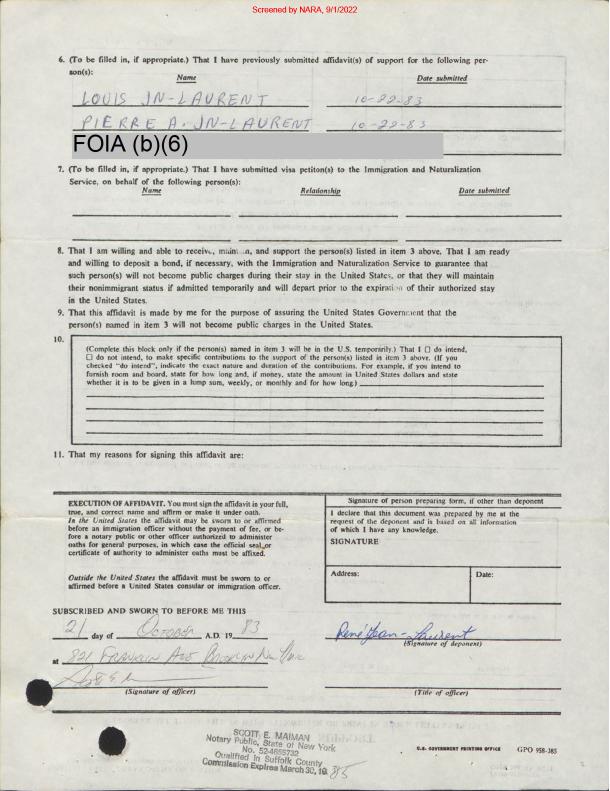 Screened by NARA, 9/1/2022
6. (To be filled in, if appropriate.) That I have previously submitted affidavit(s) of support for the following per-
son(s):
Name Date submitted
LOUIS JN-LAURENT 10-22-83
PIERRE A. JN-LAURENT 10-22-83
FOIA (b)(6)
7. (To be filled in, if appropriate.) That I have submitted visa petiton(s) to the Immigration and Naturalization
Service, on behalf of the following person(s):
Name Relationship Date submitted
8. That I am willing and able to receive, maintain, and support the person(s) listed in item 3 above. That I am ready
and willing to deposit a bond, if necessary, with the Immigration and Naturalization Service to guarantee that
such person(s) will not become public charges during their stay in the United States, or that they will maintain
their nonimmigrant status if admitted temporarily and will depart prior to the expiration of their authorized stay
in the United States.
9. That this affidavit is made by me for the purpose of assuring the United States Government that the
person(s) named in item 3 will not become public charges in the United States.
10.
(Complete this block only if the person(s) named in item 3 will be in the U.S. temporarily.) That I ☐ do intend,
☐ do not intend, to make specific contributions to the support of the person(s) listed in item 3 above. (If you
checked "do intend", indicate the exact nature and duration of the contributions. For example, if you intend to
furnish room and board, state for how long and, if money, state the amount in United States dollars and state
whether it is to be given in a lump sum, weekly, or monthly and for how long.)
11. That my reasons for signing this affidavit are:
EXECUTION OF AFFIDAVIT. You must sign the affidavit in your full,
true, and correct name and affirm or make it under oath.
In the United States the affidavit may be sworn to or affirmed
before an immigration officer without the payment of fee, or be-
fore a notary public or other officer authorized to administer
oaths for general purposes, in which case the official seal or
certificate of authority to administer oaths must be affixed.
Outside the United States the affidavit must be sworn to or
affirmed before a United States consular or immigration officer.
Signature of person preparing form, if other than deponent
I declare that this document was prepared by me at the
request of the deponent and is based on all information
of which I have any knowledge.
SIGNATURE
Address: Date:
SUBSCRIBED AND SWORN TO BEFORE ME THIS
21 day of October A.D. 19 83
René Jean-Laurent
(Signature of deponent)
at 821 Franklin Ave Brooklyn New York
(Signature of officer) (Title of officer)
SCOTT E. MAIMAN
Notary Public, State of New York
No. 52-4655732
Qualified in Suffolk County
Commission Expires March 30, 19 85
U.S. GOVERNMENT PRINTING OFFICE GPO 958-385